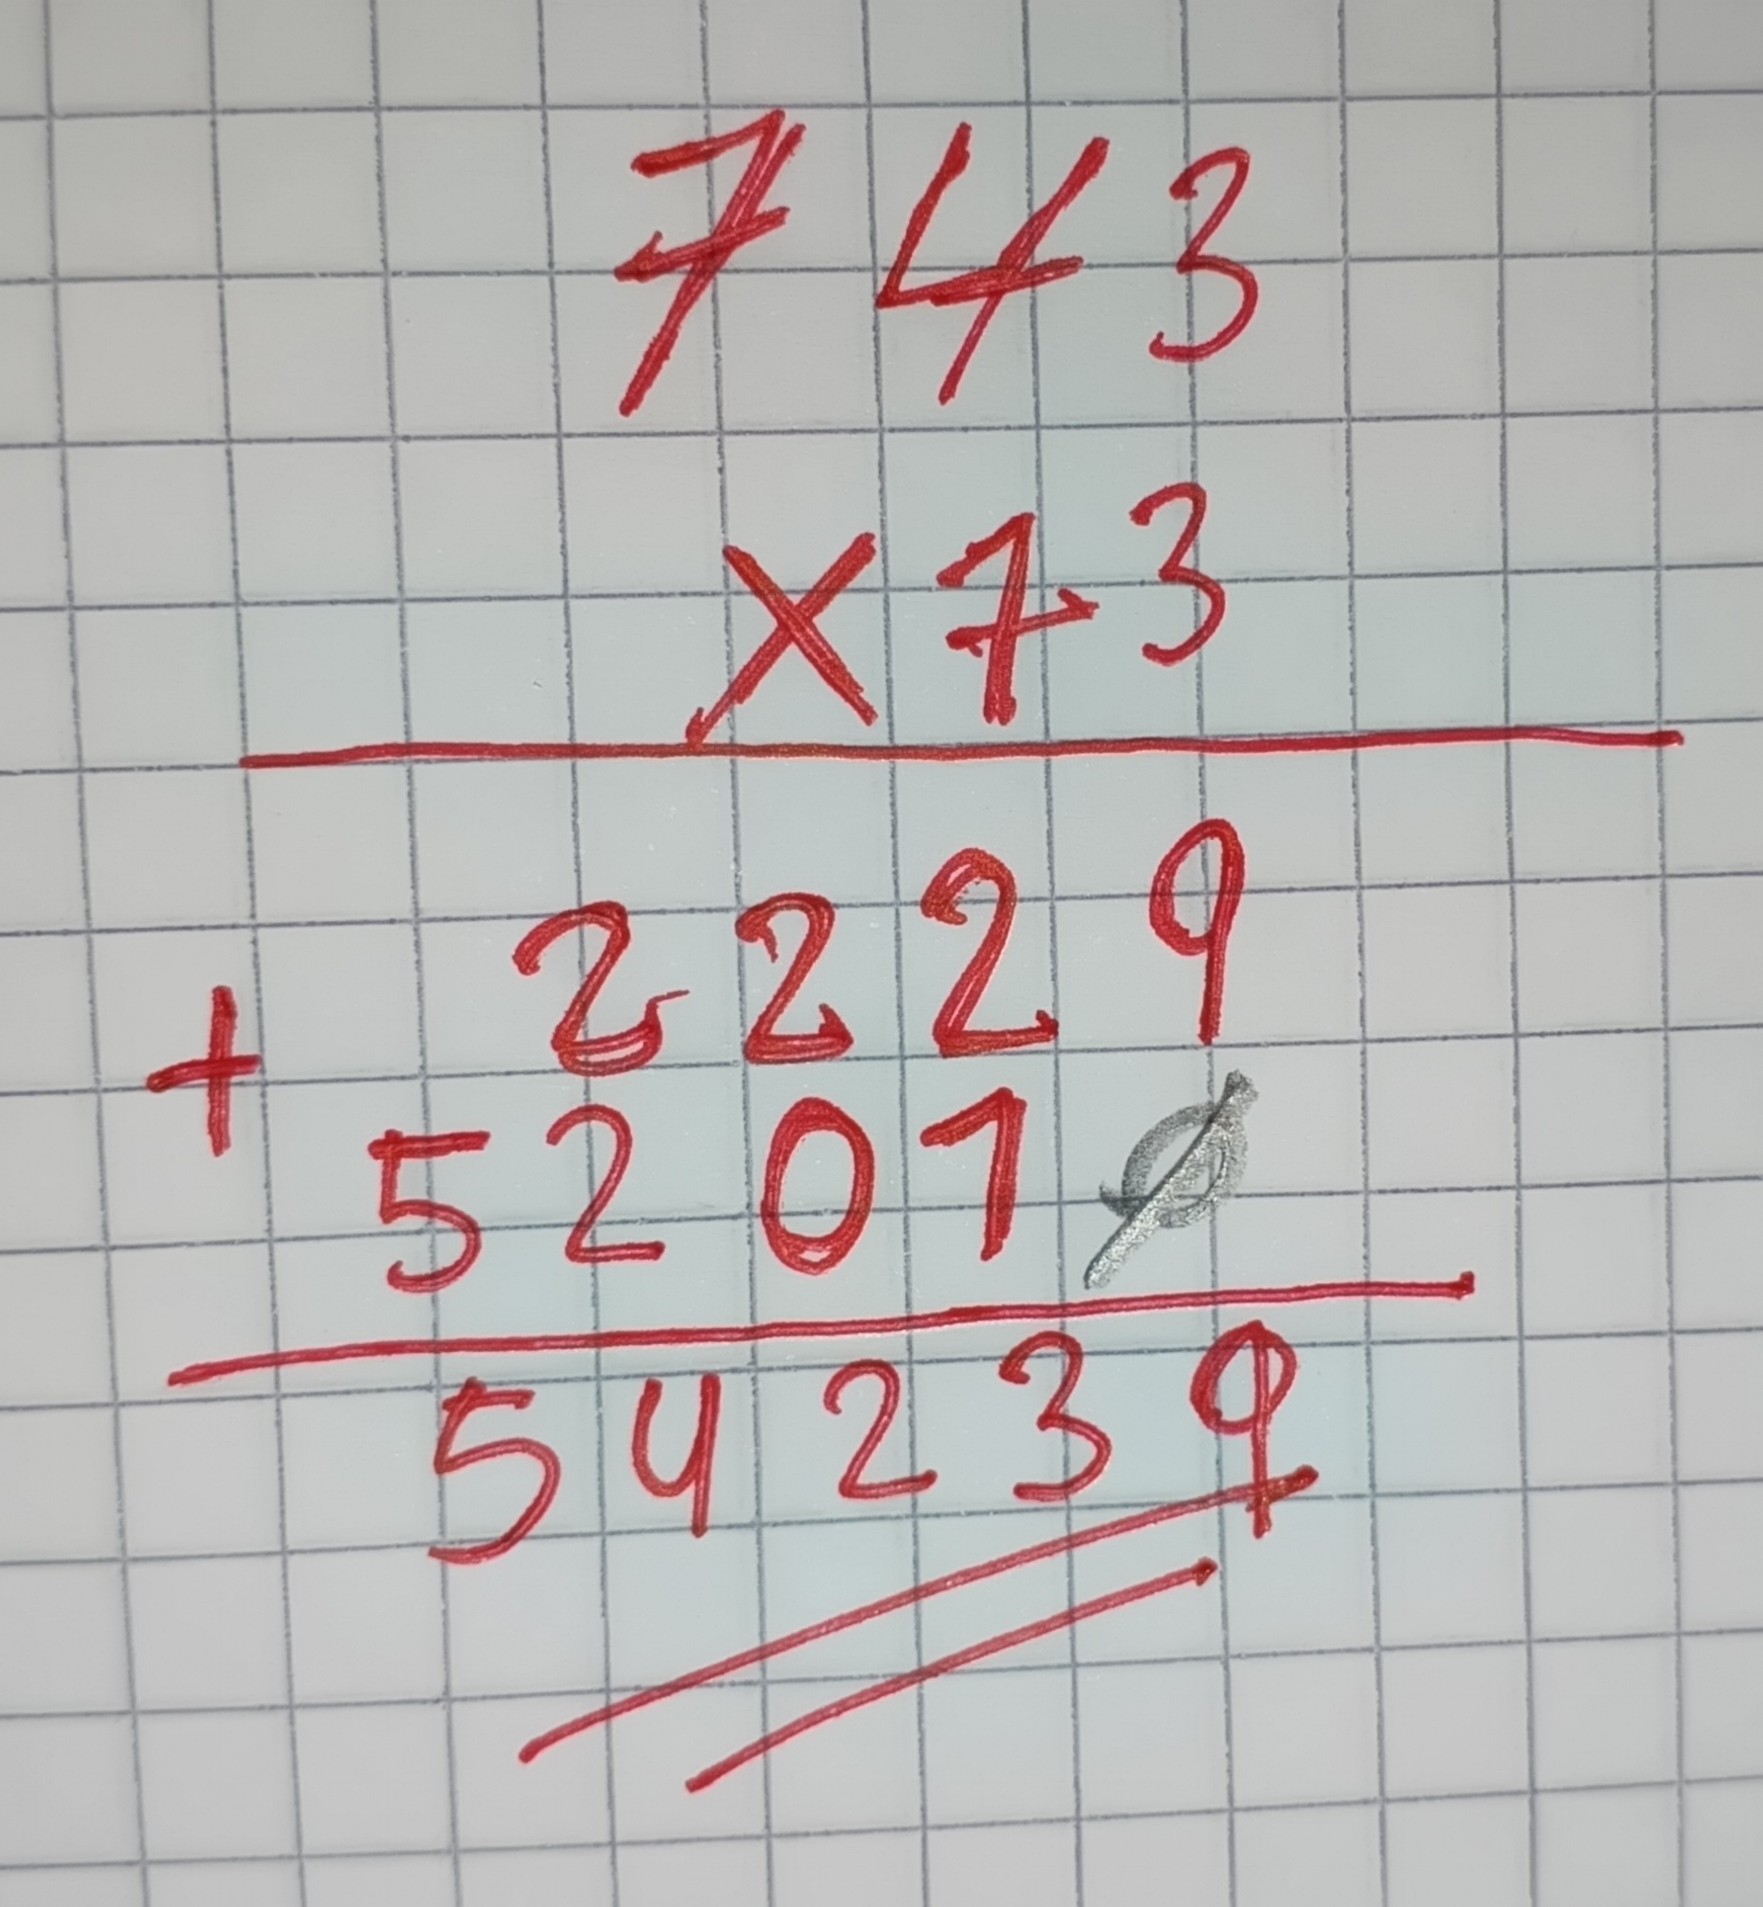 743
×73
2229
+ 5201Ø
54239